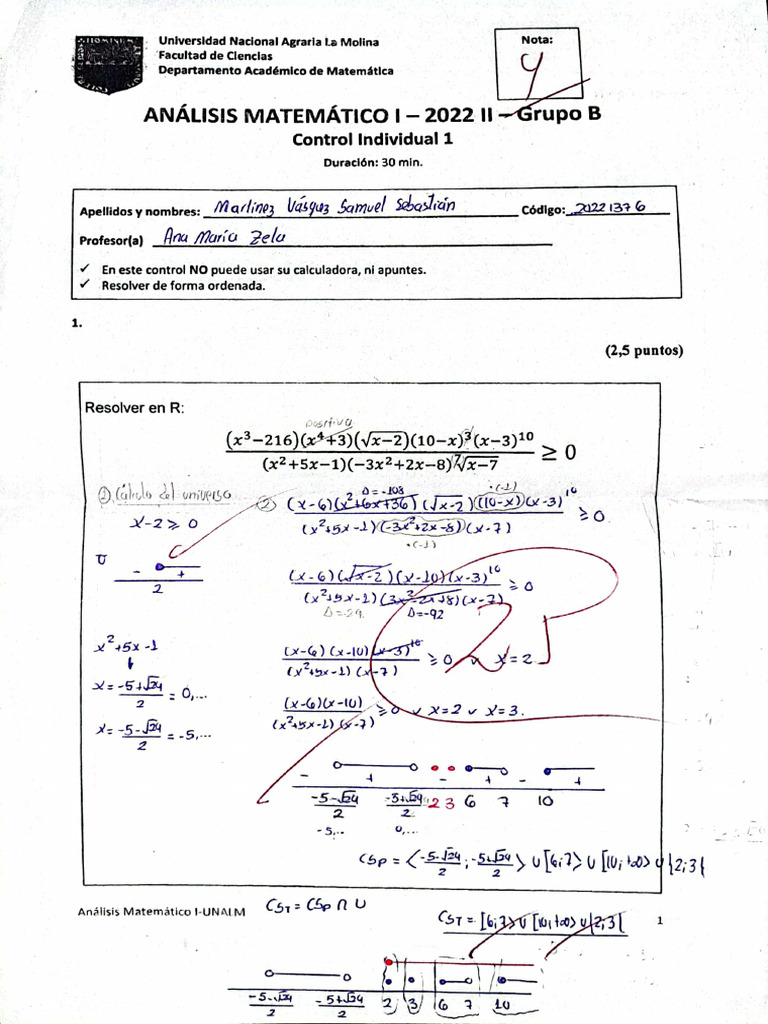 Universidad Nacional Agraria La Molina
Facultad de Ciencias
Departamento Académico de Matemática
Nota:
4
ANÁLISIS MATEMÁTICO I – 2022 II – Grupo B
Control Individual 1
Duración: 30 min.
Apellidos y nombres: Martinez Vásquez Samuel Sebastián Código: 20221376
Profesor(a) Ana María Zela
✓ En este control NO puede usar su calculadora, ni apuntes.
✓ Resolver de forma ordenada.
1.
(2,5 puntos)
Resolver en R:
positiva
(x³−216)(x⁴+3)(√x−2)(10−x)³(x−3)¹⁰ / (x²+5x−1)(−3x²+2x−8) ⁷√x−7 ≥ 0
① Cálculo del universo
x-2 ≥ 0
U
- +
2
x²+5x-1
x = -5+√29 / 2 = 0,...
x = -5-√29 / 2 = -5,...
② Δ=-108 ·(-1)
(x-6)(x²+6x+36)(√x-2)(10-x)(x-3)¹⁰ / (x²+5x-1)(-3x²+2x-8)(x-7) ≥ 0
·(-1)
(x-6)(√x-2)(x-10)(x-3)¹⁰ / (x²+5x-1)(3x²-2x+8)(x-7) ≥ 0
Δ=29 Δ=-92
(x-6)(x-10)(x-3)¹⁰ / (x²+5x-1)(x-7) ≥ 0 ∨ x=2
(x-6)(x-10) / (x²+5x-1)(x-7) ≥ 0 ∨ x=2 ∨ x=3.
- + - + - +
-5-√29 / 2 -5+√29 / 2 2 3 6 7 10
-5,... 0,...
CSp = ⟨-5-√29 / 2 ; -5+√29 / 2⟩ ∪ [6;7⟩ ∪ [10,+∞⟩ ∪ {2;3}
Análisis Matemático I-UNALM
CS_T = CSp ∩ U
CS_T = [6;7⟩ ∪ [10,+∞⟩ ∪ {2;3}
1
-5-√29 / 2 -5+√29 / 2 2 3 6 7 10